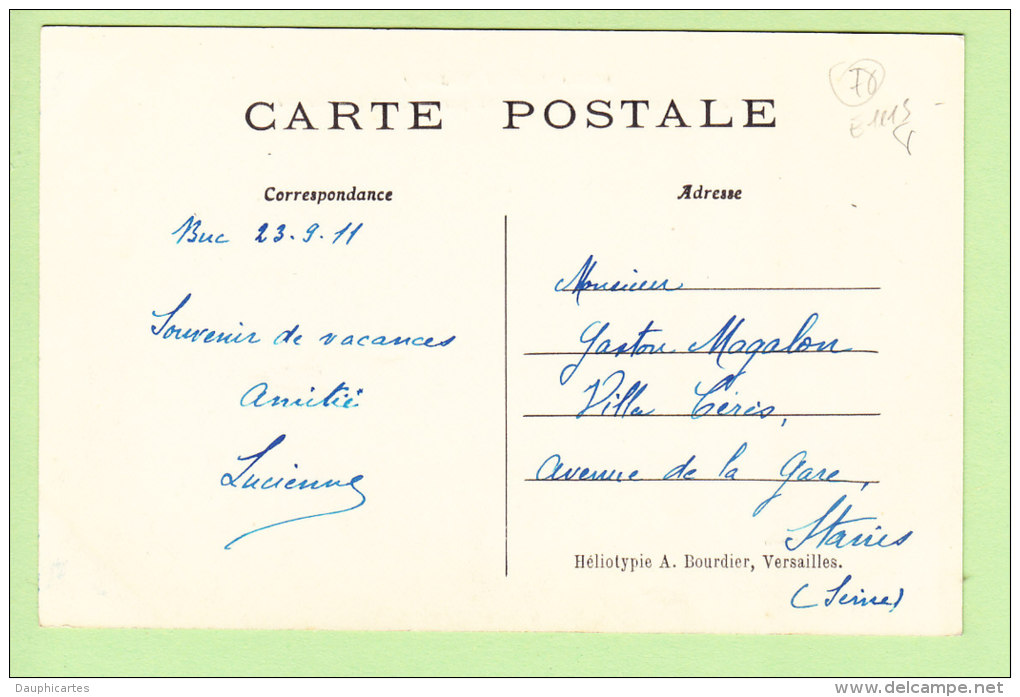 CARTE POSTALE
78
Correspondance
Buc 23.9.11
Souvenir de vacances
Amitié
Lucienne
Adresse
Monsieur
Gaston Magalon
Villa Cérès,
Avenue de la Gare,
Stains
(Seine)
Héliotypie A. Bourdier, Versailles.
Dauphicartes
delcampe.net